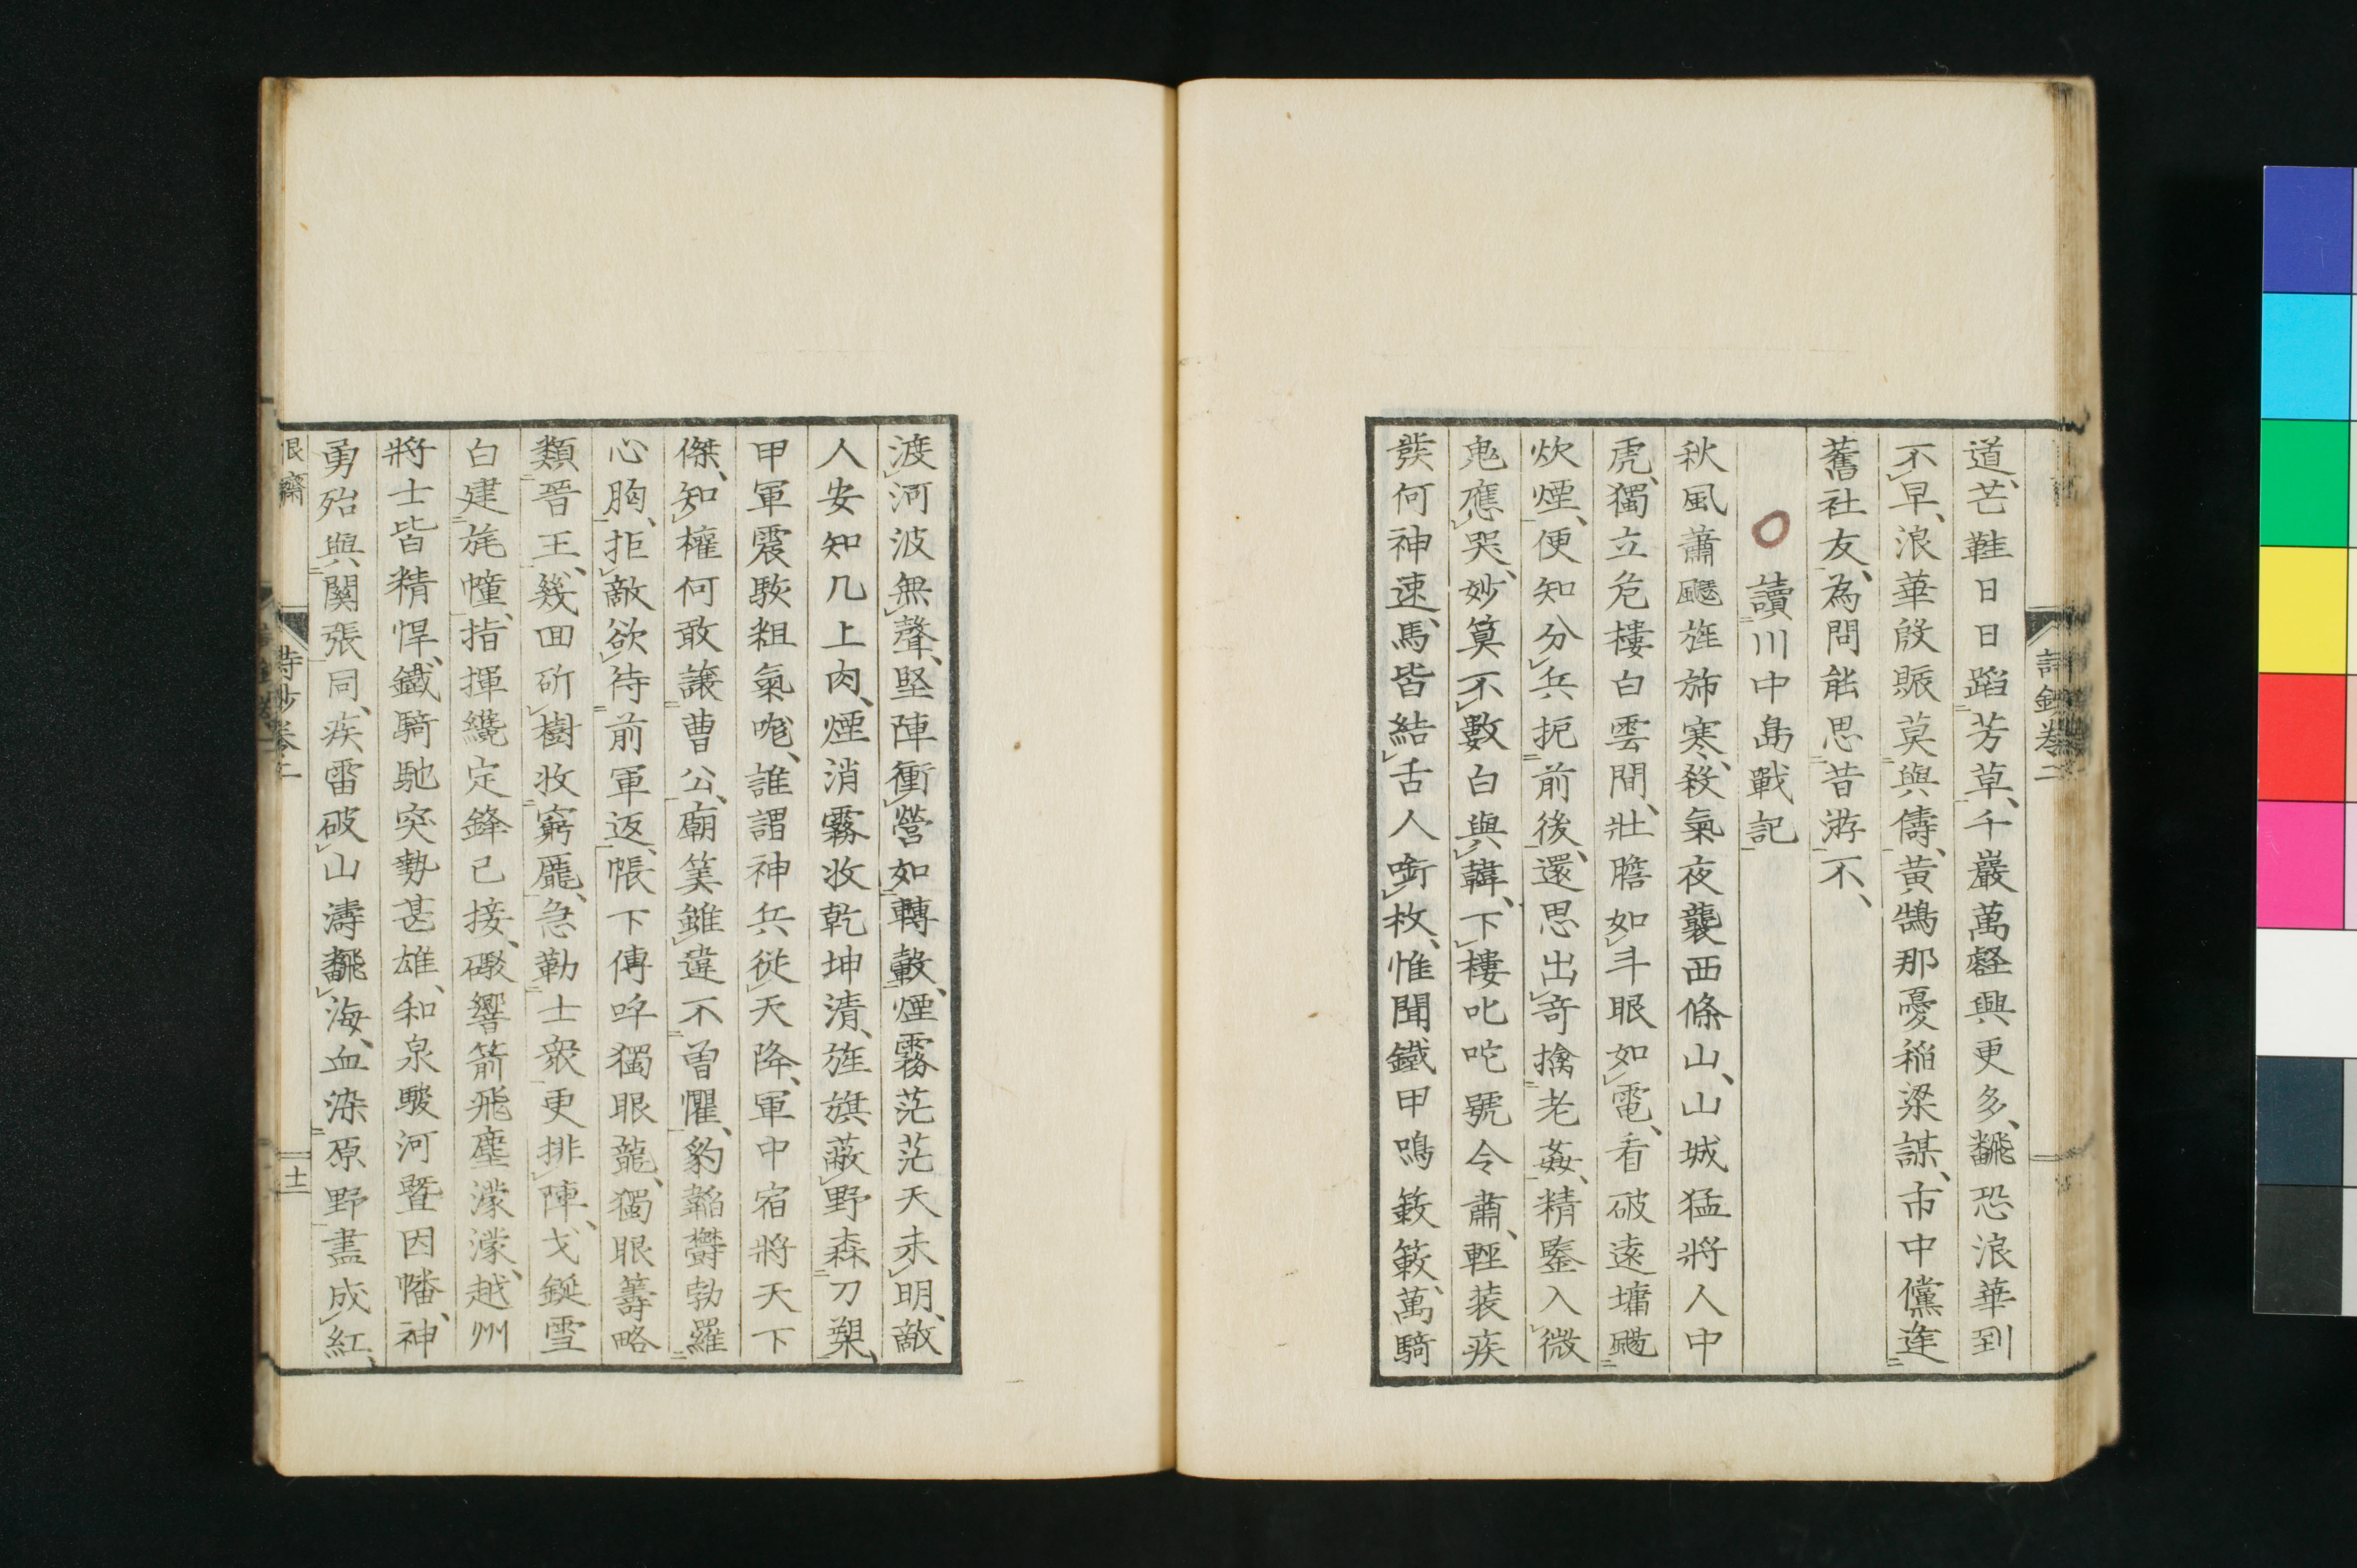 道、芒鞋日日蹈芳草、千巖萬壑興更多、飜恐浪華到
不早、浪華殷賑莫與儔、黃鵠那憂稲梁謀、市中儻逢
舊社友、為問能思昔游不、
讀川中島戰記
秋風蕭颼旌斾寒、殺氣夜襲西條山、山城猛將人中
虎、獨立危樓白雲間、壯膽如斗眼如電、看破遠墉颺
炊煙、便知分兵扼前後、還思出奇擒老姦、精鑒入微
鬼應哭、妙算不數白與韓、下樓叱咜號令肅、輕裝疾
發何神速、馬皆結舌人銜枚、惟聞鐵甲鳴簌簌、萬騎
詩鈔卷二
渡河波無聲、堅陣衝營如轉轂、煙霧茫茫天未明、敵
人安知几上肉、煙消霧收乾坤清、旌旗蔽野森刀槊、
甲軍震駭粗氣呃、誰謂神兵從天降、軍中宿將天下
傑、知權何敢讓曹公、廟筭雖違不曽懼、豹韜鬱勃羅
心胸、拒敵欲待前軍返、帳下傳呼獨眼龍、獨眼籌略
類晉王、幾回斫樹收窮龐、急勒士衆更排陣、戈鋋雪
白建旄幢、指揮纔定鋒已接、礟響箭飛塵濛濛、越州
將士皆精悍、鐵騎馳突勢甚雄、和泉駿河曁因幡、神
勇殆與關張同、疾雷破山濤飜海、血染原野盡成紅、
艮齋
詩鈔卷二
十一